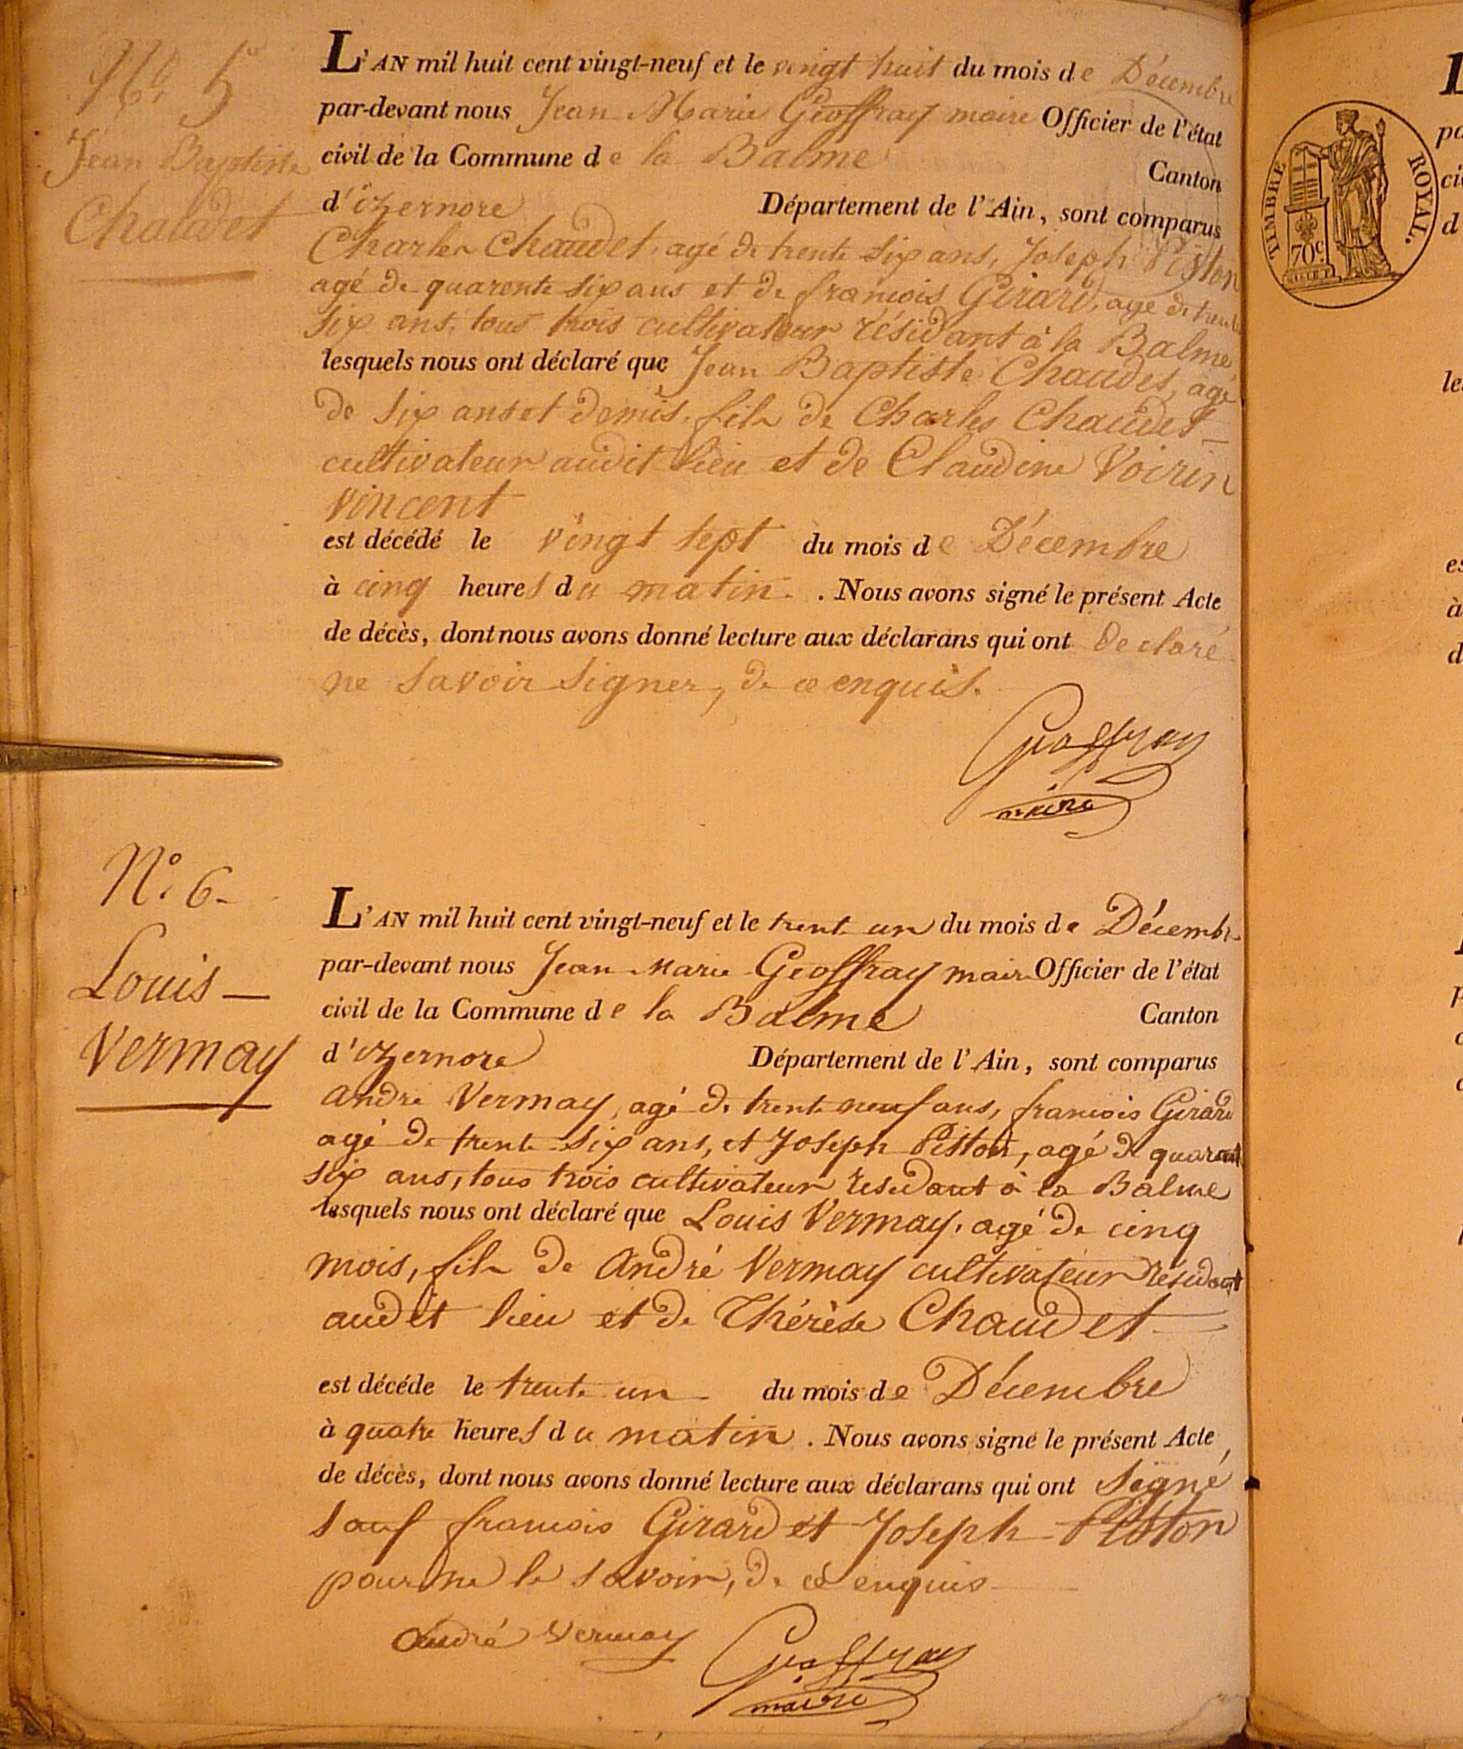 No. 5
Jean Baptiste
Chaudet
L'AN mil huit cent vingt-neuf et le vingt huit du mois de Décembre
par-devant nous Jean Marie Geoffray maire Officier de l'état
civil de la Commune de la Balme Canton
d'izernore Département de l'Ain, sont comparus
Charles Chaudet, agé de trente six ans, Joseph Piston
agé de quarente six ans et de francois Girard, agé de trente
six ans, tous trois cultivateur résidant à la Balme
lesquels nous ont déclaré que Jean Baptiste Chaudet, agé
de six ans et demis, fils de Charles Chaudet
cultivateur audit lieu et de Claudine Voirin
vincent
est décédé le vingt sept du mois de Décembre
à cinq heures du matin. Nous avons signé le présent Acte
de décès, dont nous avons donné lecture aux déclarans qui ont declaré
ne savoir signer, de ce enquis.
Geoffray
maire
N°. 6
Louis
Vermay
L'AN mil huit cent vingt-neuf et le trent un du mois de Décembre
par-devant nous Jean Marie Geoffray maire Officier de l'état
civil de la Commune de la Balme Canton
d'izernore Département de l'Ain, sont comparus
andré Vermay, agé de trente neuf ans, francois Girard
agé de trente six ans, et Joseph Piston, agé de quarante
six ans, tous trois cultivateur residant à la Balme
lesquels nous ont déclaré que Louis Vermay, agé de cinq
mois, fils de andré Vermay cultivateur résidant
audet lieu et de Thérèse Chaudet
est décéde le trente un du mois de Décembre
à quatre heures du matin. Nous avons signé le présent Acte
de décès, dont nous avons donné lecture aux déclarans qui ont signé
sauf francois Girard et Joseph Piston
pour ne le savoir, de ce enquis
André Vermay
Geoffray
maire
TIMBRE ROYAL.
70c